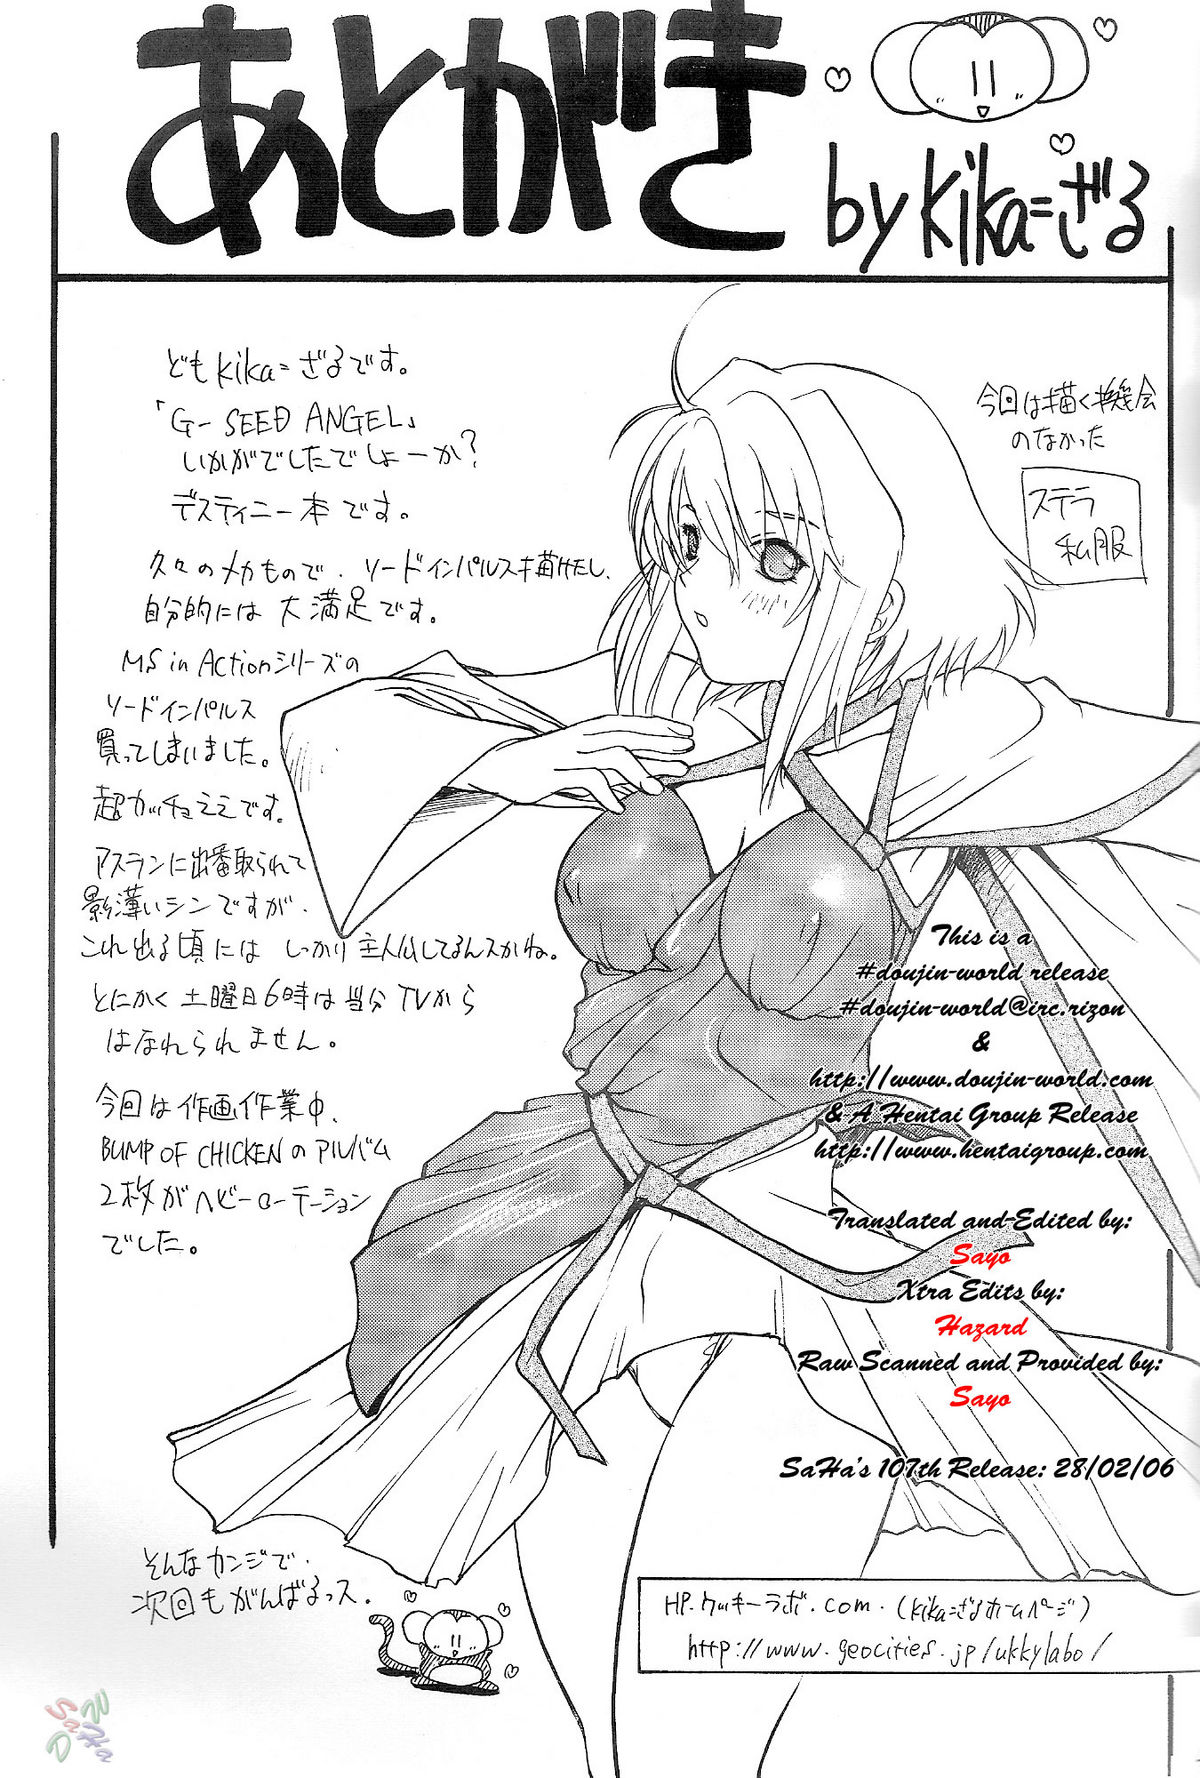 あとがき
by kika=ざる
どもkika=ざるです。
「G-SEED ANGEL」
いかがでしたでしょーか?
デスティニー本です。
久々のメカもので、ソードインパルス描けたし、
自分的には大満足です。
MS in Actionシリーズの
ソードインパルス
買ってしまいました。
超カッチョエエです。
アスランに出番取られて
影薄いシンですが、
これ出る頃には しっかり主人公してるんスかね。
とにかく土曜日6時は当分TVから
はなれられません。
今回は作画作業中、
BUMP OF CHICKENのアルバム
2枚がヘビーローテーション
でした。
そんなカンジで、
次回もがんばるっス。
今回は描く機会
のなかった
ステラ
私服
This is a
#doujin-world release
#doujin-world@irc.rizon
&
http://www.doujin-world.com
& A Hentai Group Release
http://www.hentaigroup.com
Translated and Edited by:
Sayo
Xtra Edits by:
Hazard
Raw Scanned and Provided by:
Sayo
SaHa's 107th Release: 28/02/06
HP.ウッキーラボ.com.(kika=ざるホームページ)
http://www.geocities.jp/ukkylabo/
SaHa
DW